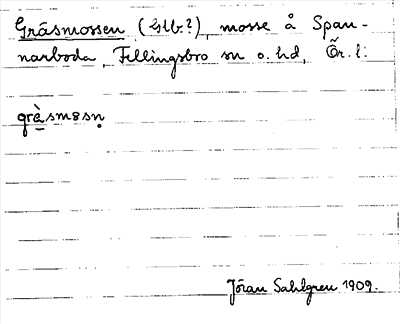 Gräsmossen (Glb.?), mosse å Span-
narboda, Fellingsbro sn o. hd, Ör. l.
grὰsmɜsṇ
Jöran Sahlgren 1909.